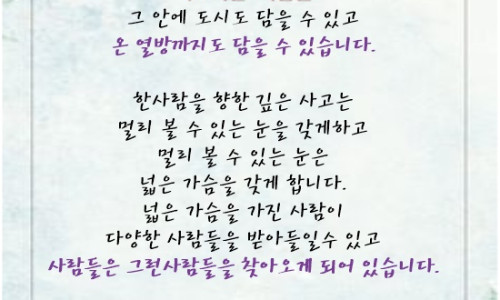 그 안에 도시도 담을 수 있고
온 열방까지도 담을 수 있습니다.
한사람을 향한 깊은 사고는
멀리 볼 수 있는 눈을 갖게하고
멀리 볼 수 있는 눈은
넓은 가슴을 갖게 합니다.
넓은 가슴을 가진 사람이
다양한 사람들을 받아들일수 있고
사람들은 그런사람들을 찾아오게 되어 있습니다.